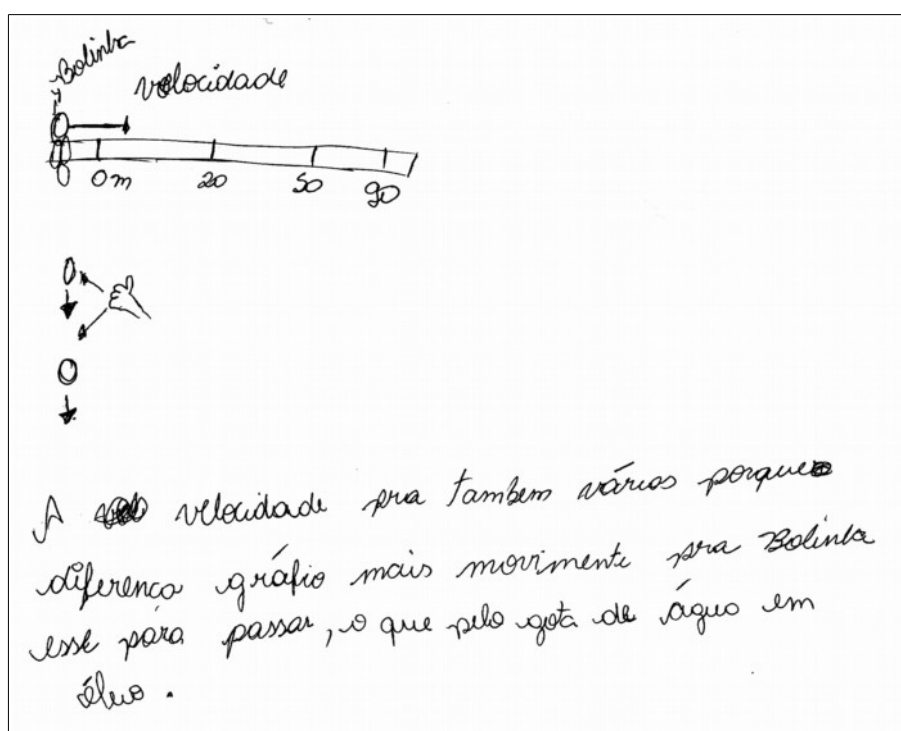 Bolinha
velocidade
0 0m 20 50 90
A velocidade pra tambem vários porque
diferenca gráfio mais movimente pra Bolinha
esse pára passar, o que pelo gota de águo em
óleo.